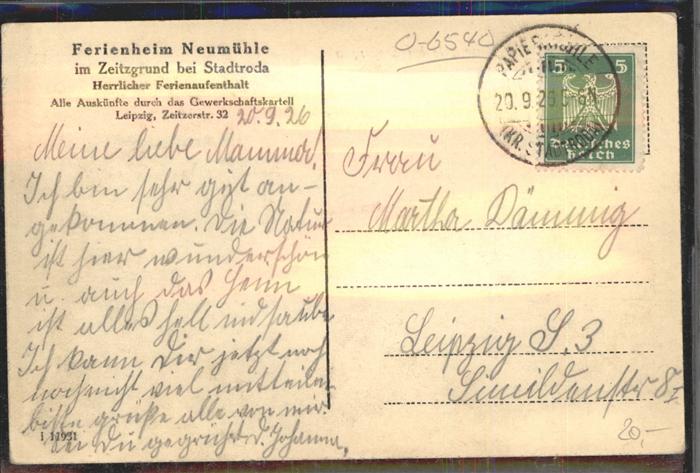 Ferienheim Neumühle
im Zeitzgrund bei Stadtroda
Herrlicher Ferienaufenthalt
Alle Auskünfte durch das Gewerkschaftskartell
Leipzig, Zeitzerstr. 32
20.9.26
Meine liebe Mamma!
Ich bin sehr gut an-
gekommen. Die Natur
ist hier wunderschön
u. auch das Heim
ist alles hell und saube
Ich kann Dir jetzt noch
noch nicht viel mitteilen
bitte grüße alle von mir
sei Du gegrüßt d. Johanna,
1 11931
0-6540
PAPIERMÜHLE
20.9.26
(KR. STADTRODA)
5 5
Deutsches
Reich
Frau
Martha Dämmig
Leipzig S. 3
Simildenstr 8 I
20,-